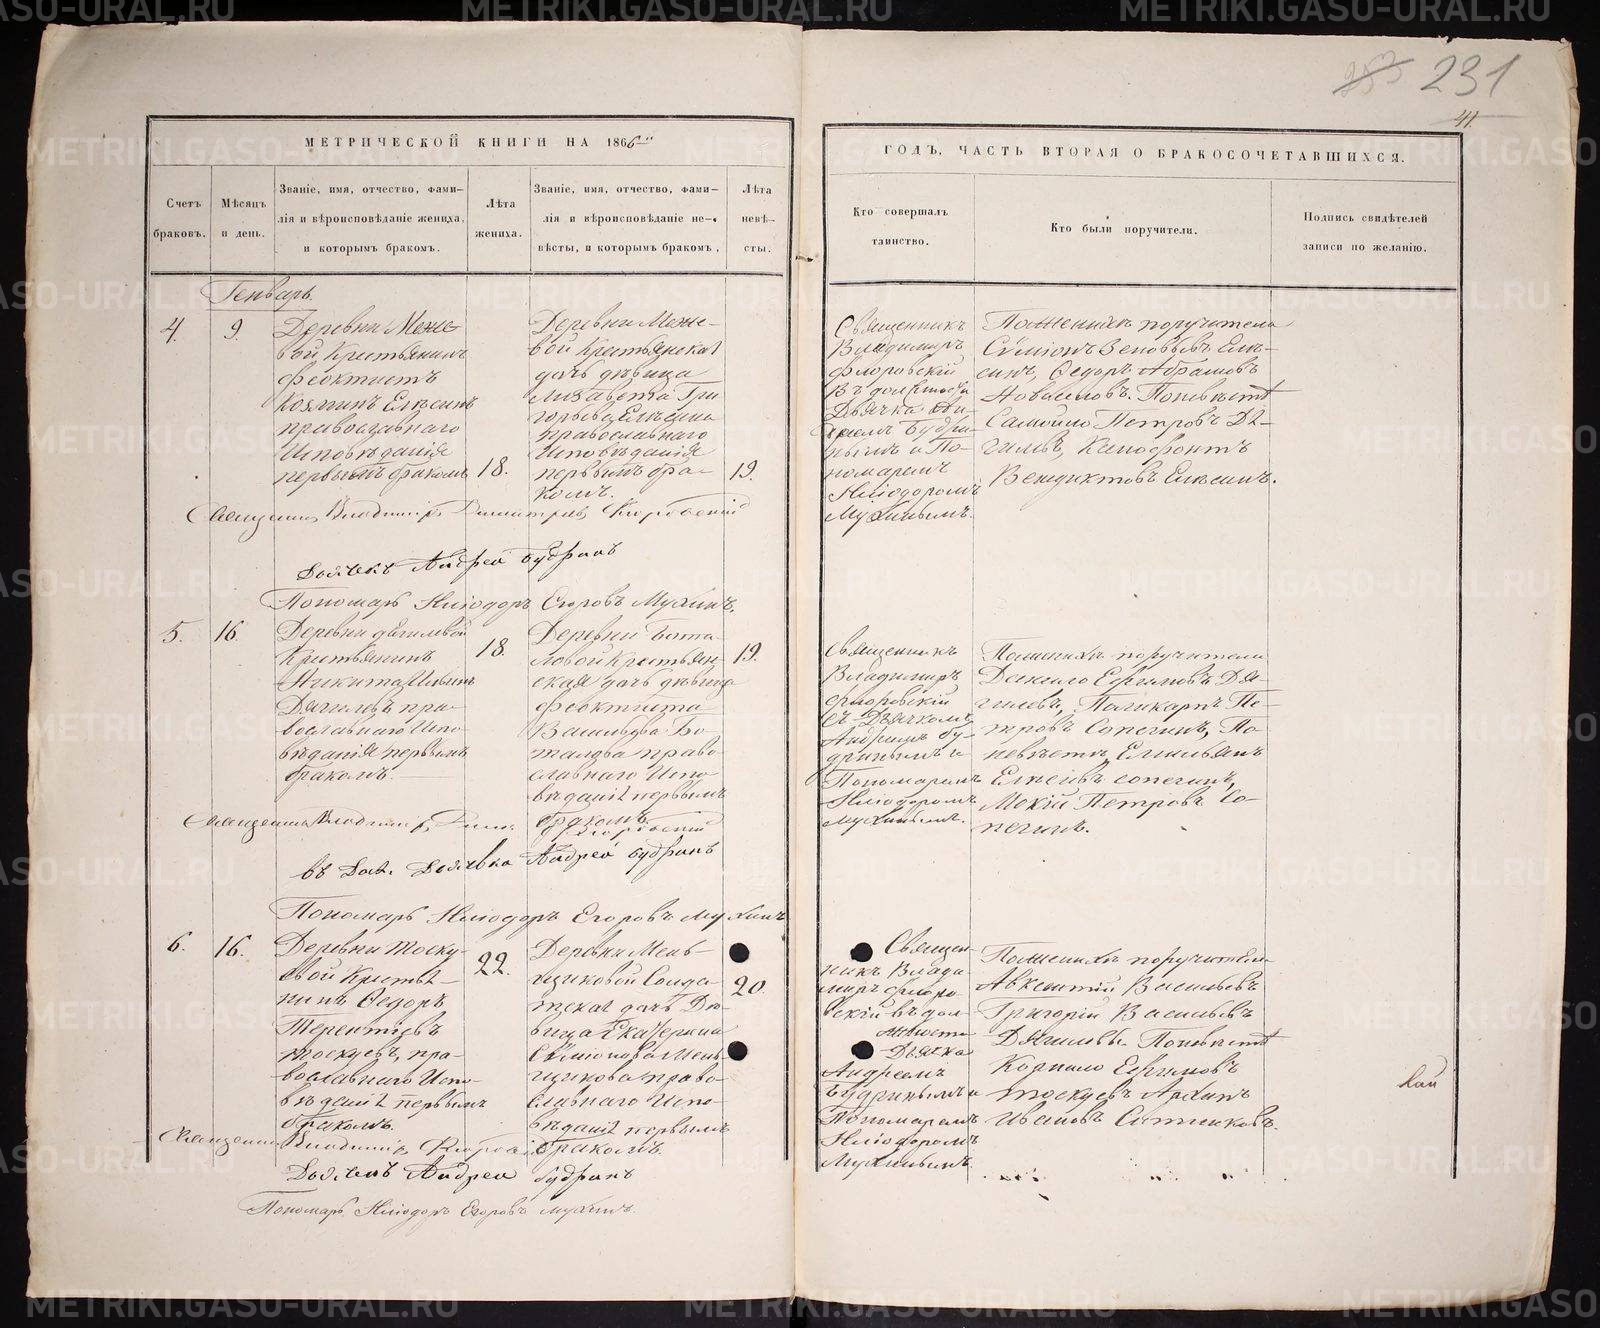 231
41.
МЕТРИЧЕСКОЙ КНИГИ НА 1866
ГОДЪ, ЧАСТЬ ВТОРАЯ О БРАКОСОЧЕТАВШИХСЯ.
Счетъ браковъ.
Мѣсяцъ и день.
Званіе, имя, отчество, фами-
лія и вѣроисповѣданіе жениха,
и которымъ бракомъ.
Лѣта
жениха.
Званіе, имя, отчество, фами-
лія и вѣроисповѣданіе не-
вѣсты, и которымъ бракомъ,
Лѣта
невѣ-
сты.
Кто совершалъ
таинство.
Кто были поручители.
Подпись свидѣтелей
записи по желанію.
Генварь.
4.
9.
Деревни Меже-
вой Крестьянинъ
Феоктистъ
Козминъ Елѣсинъ
православнаго
Исповѣданія
первымъ бракомъ
18.
Деревни Меже-
вой Крестьянская
дочь дѣвица
Лизавета Гри
горьева Елѣсина
православнаго
Исповѣданія
первымъ бра-
комъ.
19.
Священникъ
Владимиръ
Флоровскій
въ должность
Дьячка Ан-
дреемъ Будри-
нымъ и По-
номаремъ
Иліодоромъ
Мухинымъ.
По женихѣ поручители
Симіонъ Зеновьевъ Елѣ-
синъ, Федоръ Абрамовъ
Новоселовъ. По невѣстѣ
Самойло Петровъ Дя-
гилевъ, Ксенофонтъ
Венедиктовъ Елѣсинъ.
Священникъ Владимиръ Димитріевъ Флоровскій
Дьячекъ Андрей Будринъ
Пономарь Иліодоръ Егоровъ Мухинъ.
5.
16.
Деревни Дягилевой
Крестьянинъ
Никита Ильинъ
Дягилевъ пра-
вославнаго Испо-
вѣданія первымъ
бракомъ.
18.
Деревни Бота-
ловой Крестьян-
ская дочь дѣвица
Феоктиста
Васильева Бо-
талова право-
славнаго Испо-
вѣданія первымъ
бракомъ.
19.
Священникъ
Владимиръ
Флоровскій
съ Дьячкомъ
Андреемъ Бу-
дринымъ и
Пономаремъ
Иліодоромъ
Мухинымъ.
По женихѣ поручители
Данило Ефимовъ Дя-
гилевъ, Поликарпъ Пе-
тровъ Сопегинъ, По
невѣстѣ, Емельянъ
Елѣсѣевъ Сопегинъ,
Мокій Петровъ Со-
пегинъ.
Священникъ Владимиръ Флоровскій
въ дол. Дьячка Андрей Будринъ
Пономарь Иліодоръ Егоровъ Мухинъ
6.
16.
Деревни Моску-
евой Крестья-
нинъ Федоръ
Терентіевъ
Москуевъ, пра-
вославнаго Испо-
вѣданія первымъ
бракомъ.
22.
Деревни Мень-
щиковой Солда-
тская дочь Дѣ-
вица Екатерина
Семіонова Мень-
щикова право-
славнаго Испо-
вѣданія первымъ
бракомъ.
20.
Священ-
никъ Влади-
миръ Флоро-
вскій въ дол-
жности
Дьячка
Андреемъ
Будринымъ и
Пономаремъ
Иліодоромъ
Мухинымъ.
По женихѣ поручители
Авксентій Васильевъ
Григорій Васильевъ
Дягилевы. По невѣстѣ
Корнило Ефимовъ
Москуевъ Архипъ
Ивановъ Ситниковъ.
Священникъ Владимиръ Флоровскій
Дьячекъ Андрей Будринъ
Пономарь Иліодоръ Егоровъ Мухинъ.
METRIKI.GASO-URAL.RU